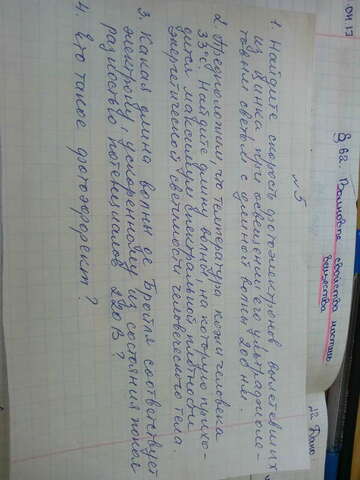 § 62 Волновые свойства частиц
вещества
№5
1. Найдите скорость фотоэлектронов, вылетевших
из цинка при освещении его ультрафиоле-
товым светом с длиной волны 200 нм.
2. Предположим, что температура кожи человека
33°С. Найдите длину волны, на которую прихо-
дится максимум спектральной плотности
энергетической светимости человеческого тела.
3. Какая длина волны де Бройля соответствует
электрону, ускоренному из состояния покоя
разностью потенциалов 220 В?
4. Что такое фотоэффект?